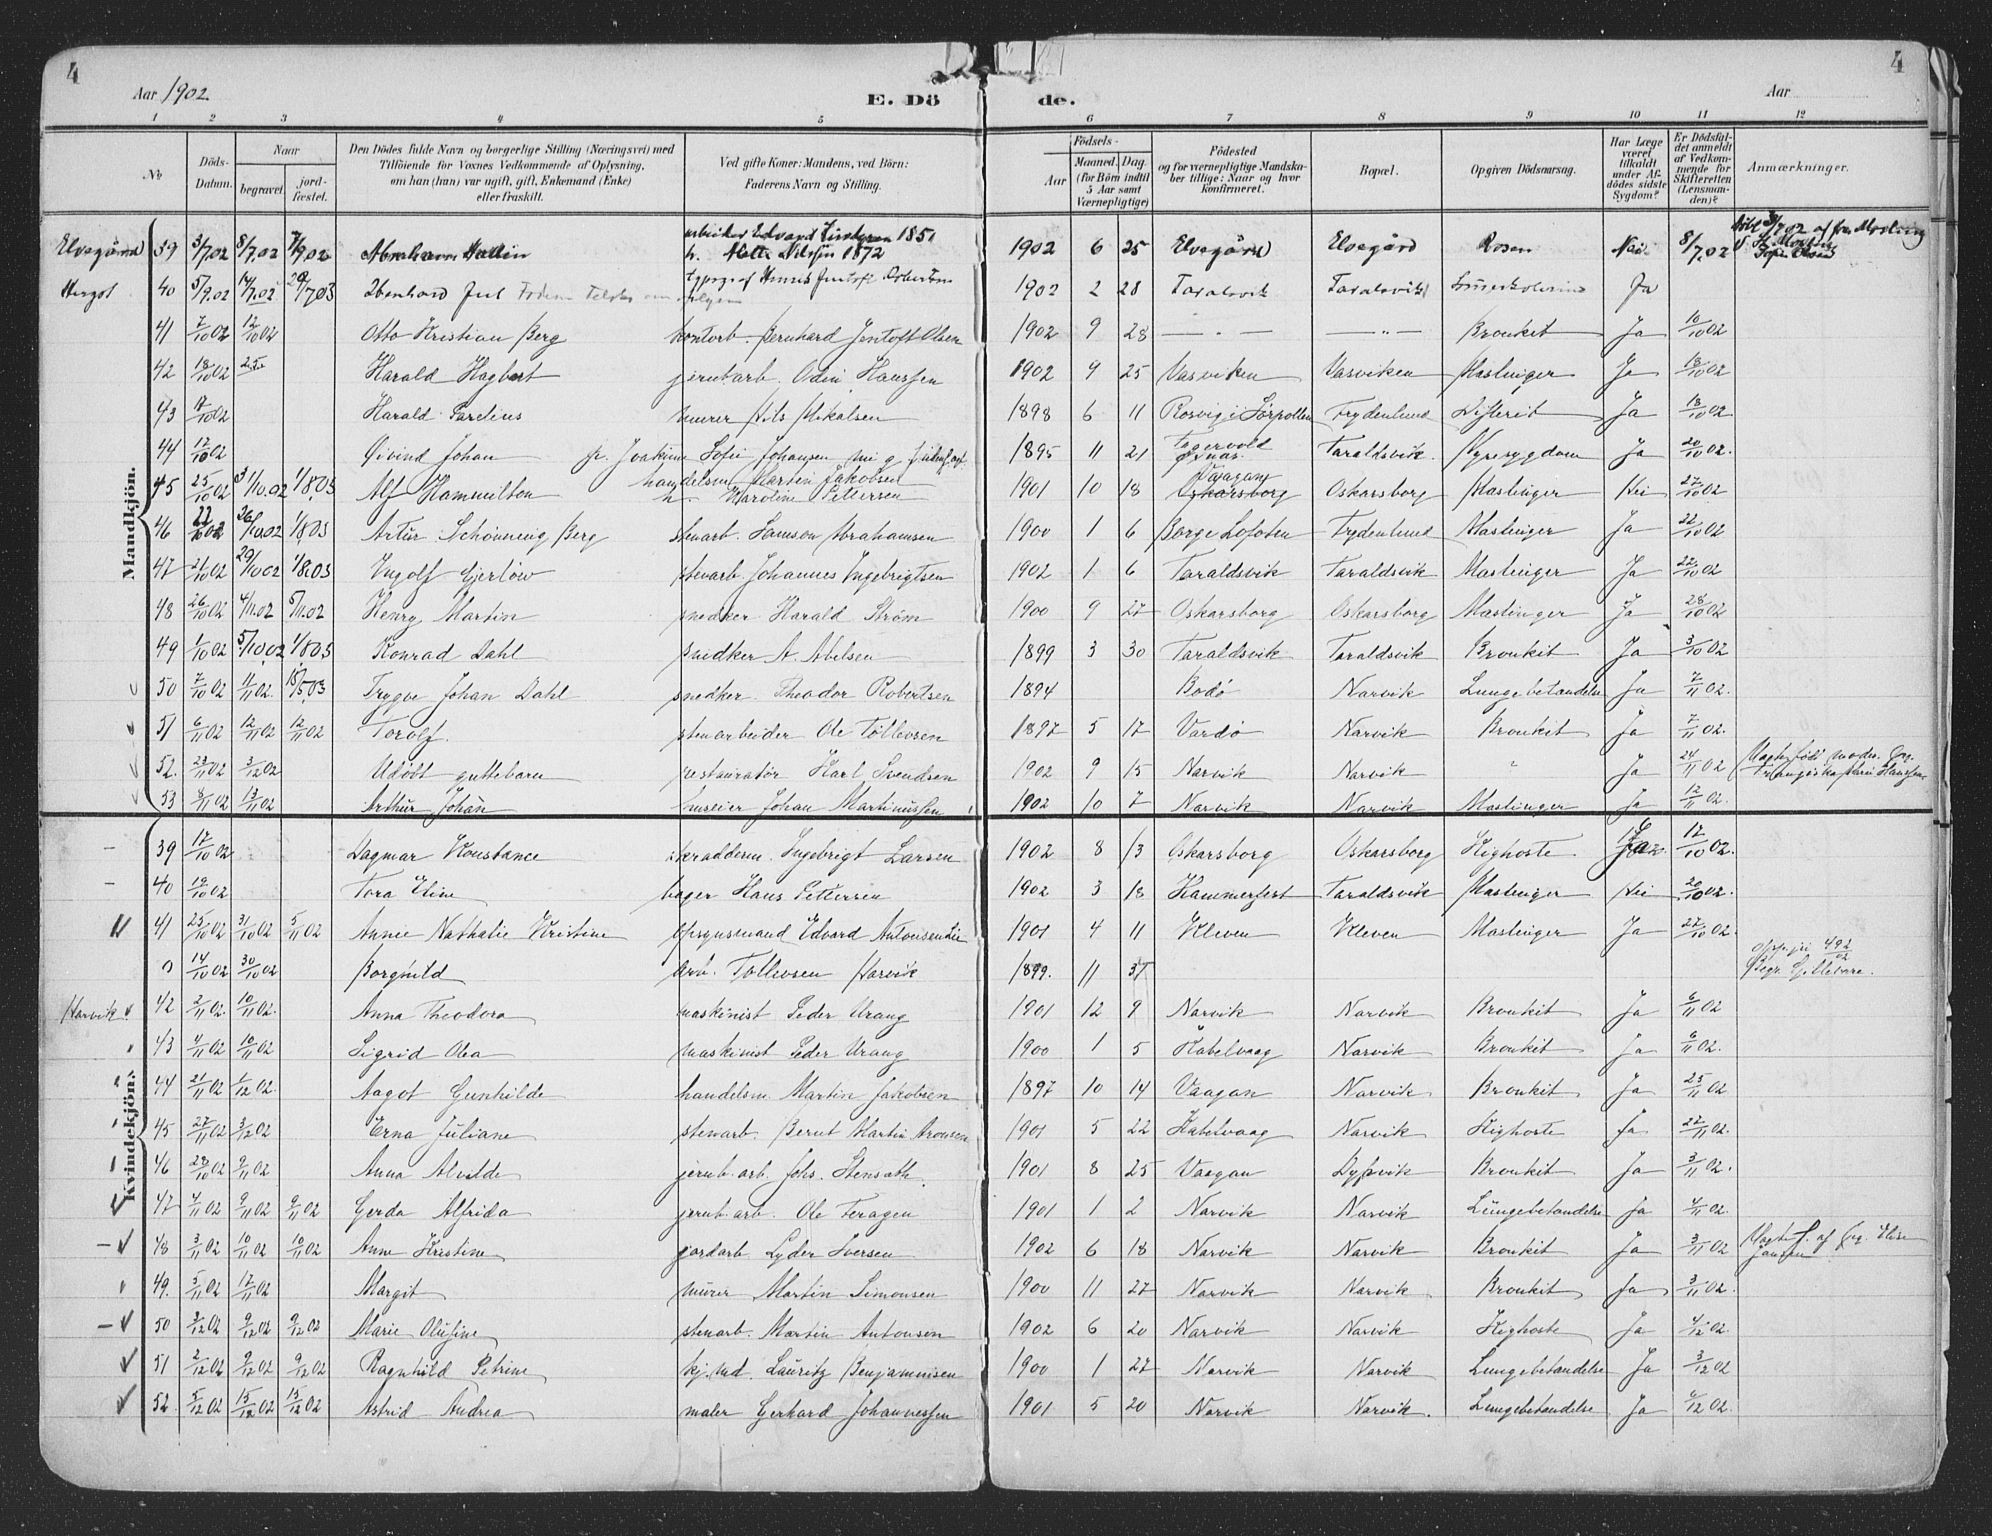 4
4
Aar 1902
E. Dö
de.
Aar
1 2 3 4 5 6 7 8 9 10 11 12
No
Döds-Datum.
Naar
begravet.
jord-fæstet.
Den Dödes fulde Navn og borgerlige Stilling (Næringsvei) med Tilföiende for Voxnes Vedkommende af Oplysning, om han (hun) var ugift, gift, Enkemand (Enke) eller fraskilt.
Ved gifte Koner: Mandens, ved Börn: Faderens Navn og Stilling.
Födsels-
Aar
Maaned. (for Börn indtil 5 Aar samt Værnepligtige)
Dag.
Födested og for værnepligtige Mandskaber tillige: Naar og hvor konfirmeret.
Bopæl.
Opgiven Dödsaarsag.
Har Læge været tilkaldt under Afdödes sidste Sygdom?
Er Dödsfaldet anmeldt af Vedkommende for Skifteretten (Lensmanden)?
Anmærkninger.
Mandkjön.
Elvegård 39 3/7.02 8/7.02 7/9.02 Abraham Hallin arbeider Edvard 1851 h. Mette Nilssen 1872 1902 6 25 Elvegård Elvegård Rosen Nei 8/7.02
40 5/9.02 14/9.02 Ibenhard Jul 1902 2 28 Taralsvik Taralsvik Ja
41 7/10 02 12/10 02 Otto Kristian Berg kontorb. Bernhard Jentoft Olsen 1902 9 28 — " — — " — Bronkit Ja 10/10 02
42 18/10 02 25/10 Harald Hagbert jernb.arb. Odin Hanssen 1902 9 25 Vasviken Vasviken Mæslinger Ja 18/10 02
43 17/10 02 Harald Parelius murer Nils Mikalsen 1898 6 11 Rosvig i Sörpollen Frydenlund Difterit Ja 18/10 02
44 17/10 02 Øivind Johan fr. Joakime Sofie Johansen 1895 11 21 Taraldsvik Nyresygdom Ja 20/10 02
45 25/10 02 31/10.02 1/8.03 Alf Hammilton handelsm. Martin Jakobsen h. Karoline Pettersen 1901 10 18 Vaagan Oskarsborg Oskarsborg Mæslinger Nei 27/10 02
46 22/10 02 26/10.02 1/8.03 Artur Schönning Berg stenarb. Samson Abrahamsen 1900 1 6 Borge Lofoten Frydenlund Mæslinger Ja 22/10 02
47 21/10 02 29/10 02 1/8.03 Ingolf Gjerlöw stenarb. Johannes Ingebrigtsen 1902 1 6 Taraldsvik Taraldsvik Mæslinger Ja 22/10 02
48 26/10 02 4/11.02 5/11.02 Henry Martin snedker Harald Strøm 1900 9 27 Oskarsborg Oskarsborg Mæslinger Ja 28/10 02
49 1/10 02 5/10.02 1/8.03 Konrad Dahl snedker A. Abelsen 1899 3 30 Taraldsvik Taraldsvik Bronkit Ja 3/10 02
50 7/10 02 11/11 02. 15/5.03 Trygve Johan Dahl snedker. Theodor Robertsen 1894 Bodö Narvik Lungebetændelse Ja 7/11 02.
51 6/11 02 12/11 02 12/11 02 Torolf. stenarbeider Ole Tollevsen 1897 5 17 Vardö Narvik Bronkit Ja 7/11 02.
52. 23/11 02 3/12 02 Udöbt guttebarn restauratør Karl Svendsen 1902 9 15 Narvik Narvik " Ja 24/11 02
53 8/11 02 13/11 02 Arthur Johan Johan Martinussen 1902 10 7 Narvik Narvik Mæslinger Ja 12/11 02.
Kvindekjön.
39 17/10 02 Dagmar Konstance skradderm. Ingebrigt Larsen 1902 8 13 Oskarsborg Oskarsborg Kighoste Ja 17/10 02.
40 19/10 02 Tora Eline bager Hans Pettersen 1902 3 18 Hammerfest Taraldsvik Mæslinger Nei 20/10 02.
41 25/10 02 31/10 02 5/11 02 Anne Nathalie Kristine Opsynsmand Edvard Antonsen 1901 4 11 Kleven Kleven Mæslinger Ja 27/10 02.
0 14/10 02 30/10 02 Borghild arb. Tollevsen Narvik 1899. 11 31 492/02 Begr. Gellivare.
Narvik 42 2/11 02. 10/11 02. Anna Theodora maskinist Peder Urang 1901 12 9 Narvik Narvik Bronkit Ja 6/11 02
43 4/11 02 10/11 02 Sigrid Olea maskinist Peder Urang 1900 1 5 Kabelvaag Narvik Bronkit Ja 6/11 02.
44 21/11 02 1/12 02. Aagot Gunhilde handelsm. Martin Jakobsen 1897 10 14 Vaagan Narvik Bronkit Ja 25/11 02
45 27/11 02 3/12 02 Erna Juliane stenarb. Bernt Martin Aronsen 1901 5 22 Kabelvaag Narvik Kighoste Ja 27/11 02.
46 28/10 02 9/11 02 Anna Alvilde jernb.arb. Johs. Stensæth. 1901 8 25 Vaagan Dypvik Bronkit Ja 3/11 02.
47 4/11 02 9/11 02 9/11 02 Gerda Alfrida jernb.arb. Ole Feragen 1901 1 2 Narvik Narvik Lungebetændelse Ja 4/11 02
48 3/11 02 10/11 02 10/11 02 Anne Kristine jordarb. Lyder Iversen 1902 6 18 Narvik Narvik Bronkit Ja 3/11 02
49. 5/11 02 17/11 02 Margit murer Martin Simonsen 1900 11 27 Narvik Narvik Bronkit Ja 3/11 02.
50 3/12 02 9/12 02 9/12 02 Marie Olufine stenarb. Martin Antonsen 1902 6 20 Narvik Narvik Kighoste Ja 4/12 02.
51 2/12 02 9/12 02 9/12 02 Ragnhild Petrine Lauritz Benjaminsen 1900 1 27 Narvik Narvik Lungebetændelse Ja 3/12 02
52. 5/12 02 15/12 02 15/12 02 Astrid Andrea maler Gerhard Johannessen 1901 5 20 Narvik Narvik. Lungebetændelse Ja 4/12 02.